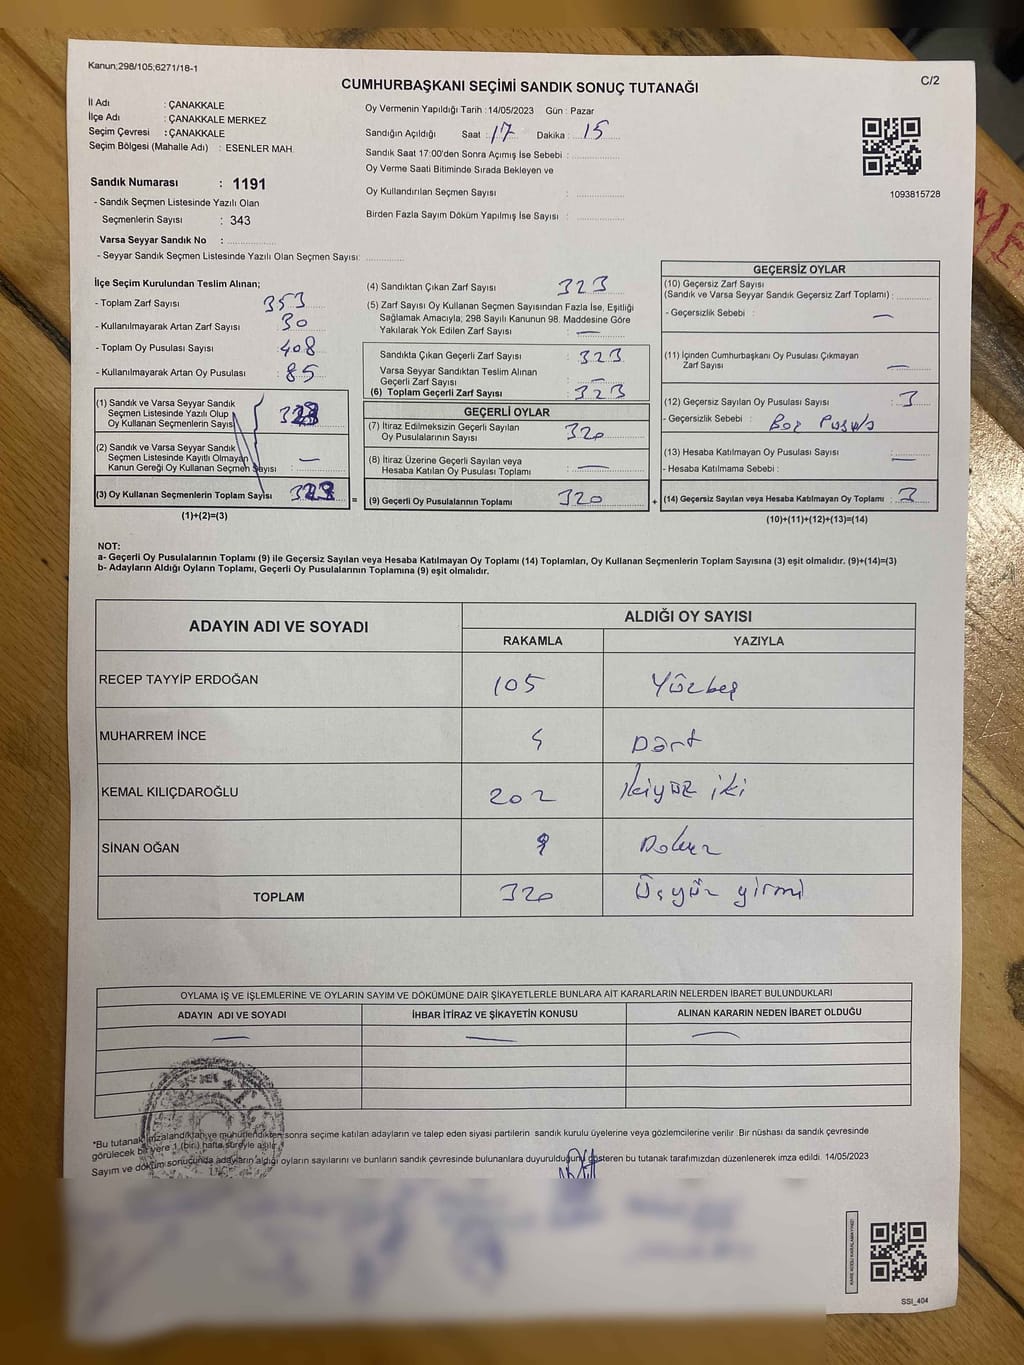 Kanun;298/105;6271/18-1
C/2
CUMHURBAŞKANI SEÇİMİ SANDIK SONUÇ TUTANAĞI
İl Adı : ÇANAKKALE
İlçe Adı : ÇANAKKALE MERKEZ
Seçim Çevresi : ÇANAKKALE
Seçim Bölgesi (Mahalle Adı) : ESENLER MAH.
Sandık Numarası : 1191
- Sandık Seçmen Listesinde Yazılı Olan
Seçmenlerin Sayısı : 343
Varsa Seyyar Sandık No :
- Seyyar Sandık Seçmen Listesinde Yazılı Olan Seçmen Sayısı:
Oy Vermenin Yapıldığı Tarih :14/05/2023 Gün : Pazar
Sandığın Açıldığı Saat : 17 Dakika : 15
Sandık Saat 17:00'den Sonra Açımış İse Sebebi :
Oy Verme Saati Bitiminde Sırada Bekleyen ve
Oy Kullandırılan Seçmen Sayısı :
Birden Fazla Sayım Döküm Yapılmış İse Sayısı :
1093815728
İlçe Seçim Kurulundan Teslim Alınan;
- Toplam Zarf Sayısı : 353
- Kullanılmayarak Artan Zarf Sayısı : 30
- Toplam Oy Pusulası Sayısı : 408
- Kullanılmayarak Artan Oy Pusulası : 85
(1) Sandık ve Varsa Seyyar Sandık
Seçmen Listesinde Yazılı Olup
Oy Kullanan Seçmenlerin Sayısı
(2) Sandık ve Varsa Seyyar Sandık
Seçmen Listesinde Kayıtlı Olmayan
Kanun Gereği Oy Kullanan Seçmen Sayısı : —
(3) Oy Kullanan Seçmenlerin Toplam Sayısı
(1)+(2)=(3)
(4) Sandıktan Çıkan Zarf Sayısı : 323
(5) Zarf Sayısı Oy Kullanan Seçmen Sayısından Fazla İse, Eşitliği
Sağlamak Amacıyla; 298 Sayılı Kanunun 98. Maddesine Göre
Yakılarak Yok Edilen Zarf Sayısı : —
Sandıkta Çıkan Geçerli Zarf Sayısı : 323
Varsa Seyyar Sandıktan Teslim Alınan
Geçerli Zarf Sayısı : —
(6) Toplam Geçerli Zarf Sayısı : 323
GEÇERLİ OYLAR
(7) İtiraz Edilmeksizin Geçerli Sayılan
Oy Pusulalarının Sayısı : 320
(8) İtiraz Üzerine Geçerli Sayılan veya
Hesaba Katılan Oy Pusulası Toplamı : —
= (9) Geçerli Oy Pusulalarının Toplamı 320 +
GEÇERSİZ OYLAR
(10) Geçersiz Zarf Sayısı
(Sandık ve Varsa Seyyar Sandık Geçersiz Zarf Toplamı) :
- Geçersizlik Sebebi : —
(11) İçinden Cumhurbaşkanı Oy Pusulası Çıkmayan
Zarf Sayısı : —
(12) Geçersiz Sayılan Oy Pusulası Sayısı : 3
- Geçersizlik Sebebi : Boş Pusula
(13) Hesaba Katılmayan Oy Pusulası Sayısı : —
- Hesaba Katılmama Sebebi :
(14) Geçersiz Sayılan veya Hesaba Katılmayan Oy Toplamı : 3
(10)+(11)+(12)+(13)=(14)
NOT:
a- Geçerli Oy Pusulalarının Toplamı (9) ile Geçersiz Sayılan veya Hesaba Katılmayan Oy Toplamı (14) Toplamları, Oy Kullanan Seçmenlerin Toplam Sayısına (3) eşit olmalıdır. (9)+(14)=(3)
b- Adayların Aldığı Oyların Toplamı, Geçerli Oy Pusulalarının Toplamına (9) eşit olmalıdır.
ADAYIN ADI VE SOYADI
ALDIĞI OY SAYISI
RAKAMLA YAZIYLA
RECEP TAYYİP ERDOĞAN 105 Yüzbeş
MUHARREM İNCE 4 Dört
KEMAL KILIÇDAROĞLU 202 İkiyüz iki
SİNAN OĞAN 9 Dokuz
TOPLAM 320 Üçyüz yirmi
OYLAMA İŞ VE İŞLEMLERİNE VE OYLARIN SAYIM VE DÖKÜMÜNE DAİR ŞİKAYETLERLE BUNLARA AİT KARARLARIN NELERDEN İBARET BULUNDUKLARI
ADAYIN ADI VE SOYADI İHBAR İTİRAZ VE ŞİKAYETİN KONUSU ALINAN KARARIN NEDEN İBARET OLDUĞU
— — —
*Bu tutanak imzalandıktan ve mühürlendikten sonra seçime katılan adayların ve talep eden siyasi partilerin sandık kurulu üyelerine veya gözlemcilerine verilir. Bir nüshası da sandık çevresinde
görülecek bir yere 1 (bir) hafta süreyle asılır.
Sayım ve döküm sonucunda adayların aldığı oyların sayılarını ve bunların sandık çevresinde bulunanlara duyurulduğunu gösteren bu tutanak tarafımızdan düzenlenerek imza edildi. 14/05/2023
SSI_404